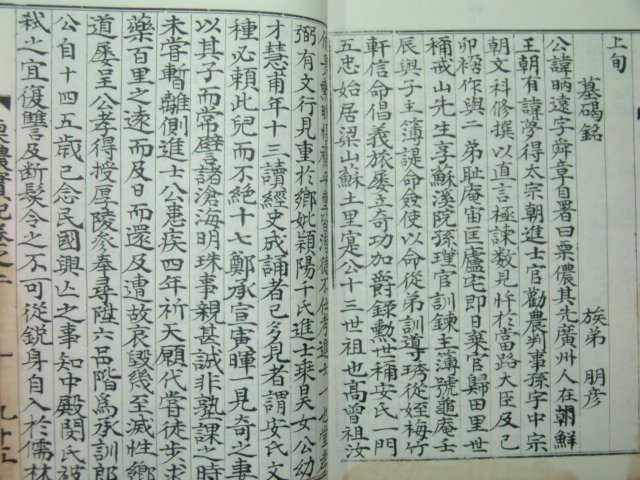 上旬
墓碣銘
族弟 朋彦
公諱昞遠字舜章自署曰栗儂其先廣州人在朝鮮
王朝有諱学得太宗朝進士官勸農判事孫字中宗
朝文科修撰以直言極諫数見忤於當路大臣及己
卯禍作與二弟耻庵宙匡盧宅即日棄官歸田里世
稱戒山先生享蘇溪院孫瑾官訓鍊主薄號龜庵壬
辰與子主簿諟命奸使以命從弟訓導琇從姪梅竹
軒信命倡義旅屡立奇功加爵録勲世稱安氏一門
五忠始居梁山蘇土里寔公十三世祖也高曾祖汝
弼有文行見重於鄉妣穎陽千氏進士乘昊女公幼
才慧甫年十三讀經史成誦者已多見者謂安氏文
種必頼此兒而不絶十七鄭承宣寅暉一見奇之妻
以其子而常譬諸滄海明珠事親甚誠非塾課之時
未嘗暫離側進士公患疾四年祈天願代嘗徒步求
藥百里之遠而及日而還及遭故哀毀幾至滅性鄉
道屡呈公孝得授厚陵参奉尋陞六品階爲承訓郎
公自十四五歳已念民國興亾之事知中殿閔氏被
弑之宜復讐及断髪令之不可從鋭身自入於儒林